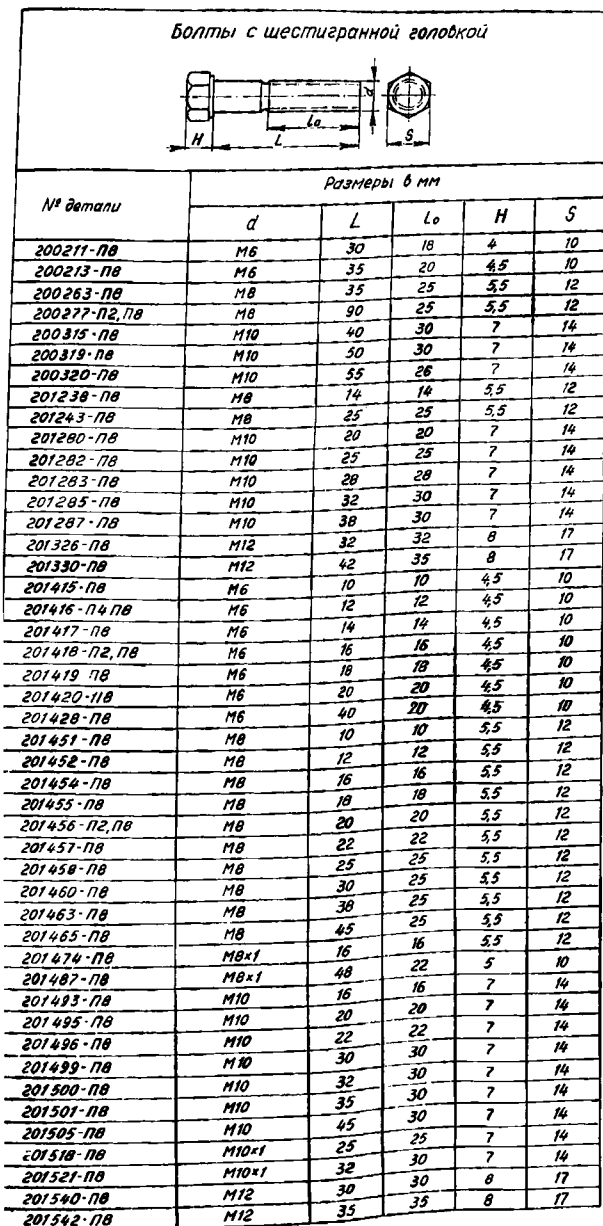 Болты с шестигранной головкой
d
H L lo S
№ детали Размеры в мм
d L lo H S
200211-П8 М6 30 18 4 10
200213-П8 М6 35 20 4,5 10
200263-П8 М8 35 25 5,5 12
200277-П2,П8 М8 90 25 5,5 12
200315-П8 М10 40 30 7 14
200319-П8 М10 50 30 7 14
200320-П8 М10 55 26 7 14
201238-П8 М8 14 14 5,5 12
201243-П8 М8 25 25 5,5 12
201280-П8 М10 20 20 7 14
201282-П8 М10 25 25 7 14
201283-П8 М10 28 28 7 14
201285-П8 М10 32 30 7 14
201287-П8 М10 38 30 7 14
201326-П8 М12 32 32 8 17
201330-П8 М12 42 35 8 17
201415-П8 М6 10 10 4,5 10
201416-П4 П8 М6 12 12 4,5 10
201417-П8 М6 14 14 4,5 10
201418-П2,П8 М6 16 16 4,5 10
201419 П8 М6 18 18 4,5 10
201420-П8 М6 20 20 4,5 10
201428-П8 М6 40 20 4,5 10
201451-П8 М8 10 10 5,5 12
201452-П8 М8 12 12 5,5 12
201454-П8 М8 16 16 5,5 12
201455-П8 М8 18 18 5,5 12
201456-П2,П8 М8 20 20 5,5 12
201457-П8 М8 22 22 5,5 12
201458-П8 М8 25 25 5,5 12
201460-П8 М8 30 25 5,5 12
201463-П8 М8 38 25 5,5 12
201465-П8 М8 45 25 5,5 12
201474-П8 М8×1 16 16 5,5 12
201487-П8 М8×1 48 22 5 10
201493-П8 М10 16 16 7 14
201495-П8 М10 20 20 7 14
201496-П8 М10 22 22 7 14
201499-П8 М10 30 30 7 14
201500-П8 М10 32 30 7 14
201501-П8 М10 35 30 7 14
201505-П8 М10 45 30 7 14
201518-П8 М10×1 25 25 7 14
201521-П8 М10×1 32 30 7 14
201540-П8 М12 30 30 8 17
201542-П8 М12 35 35 8 17